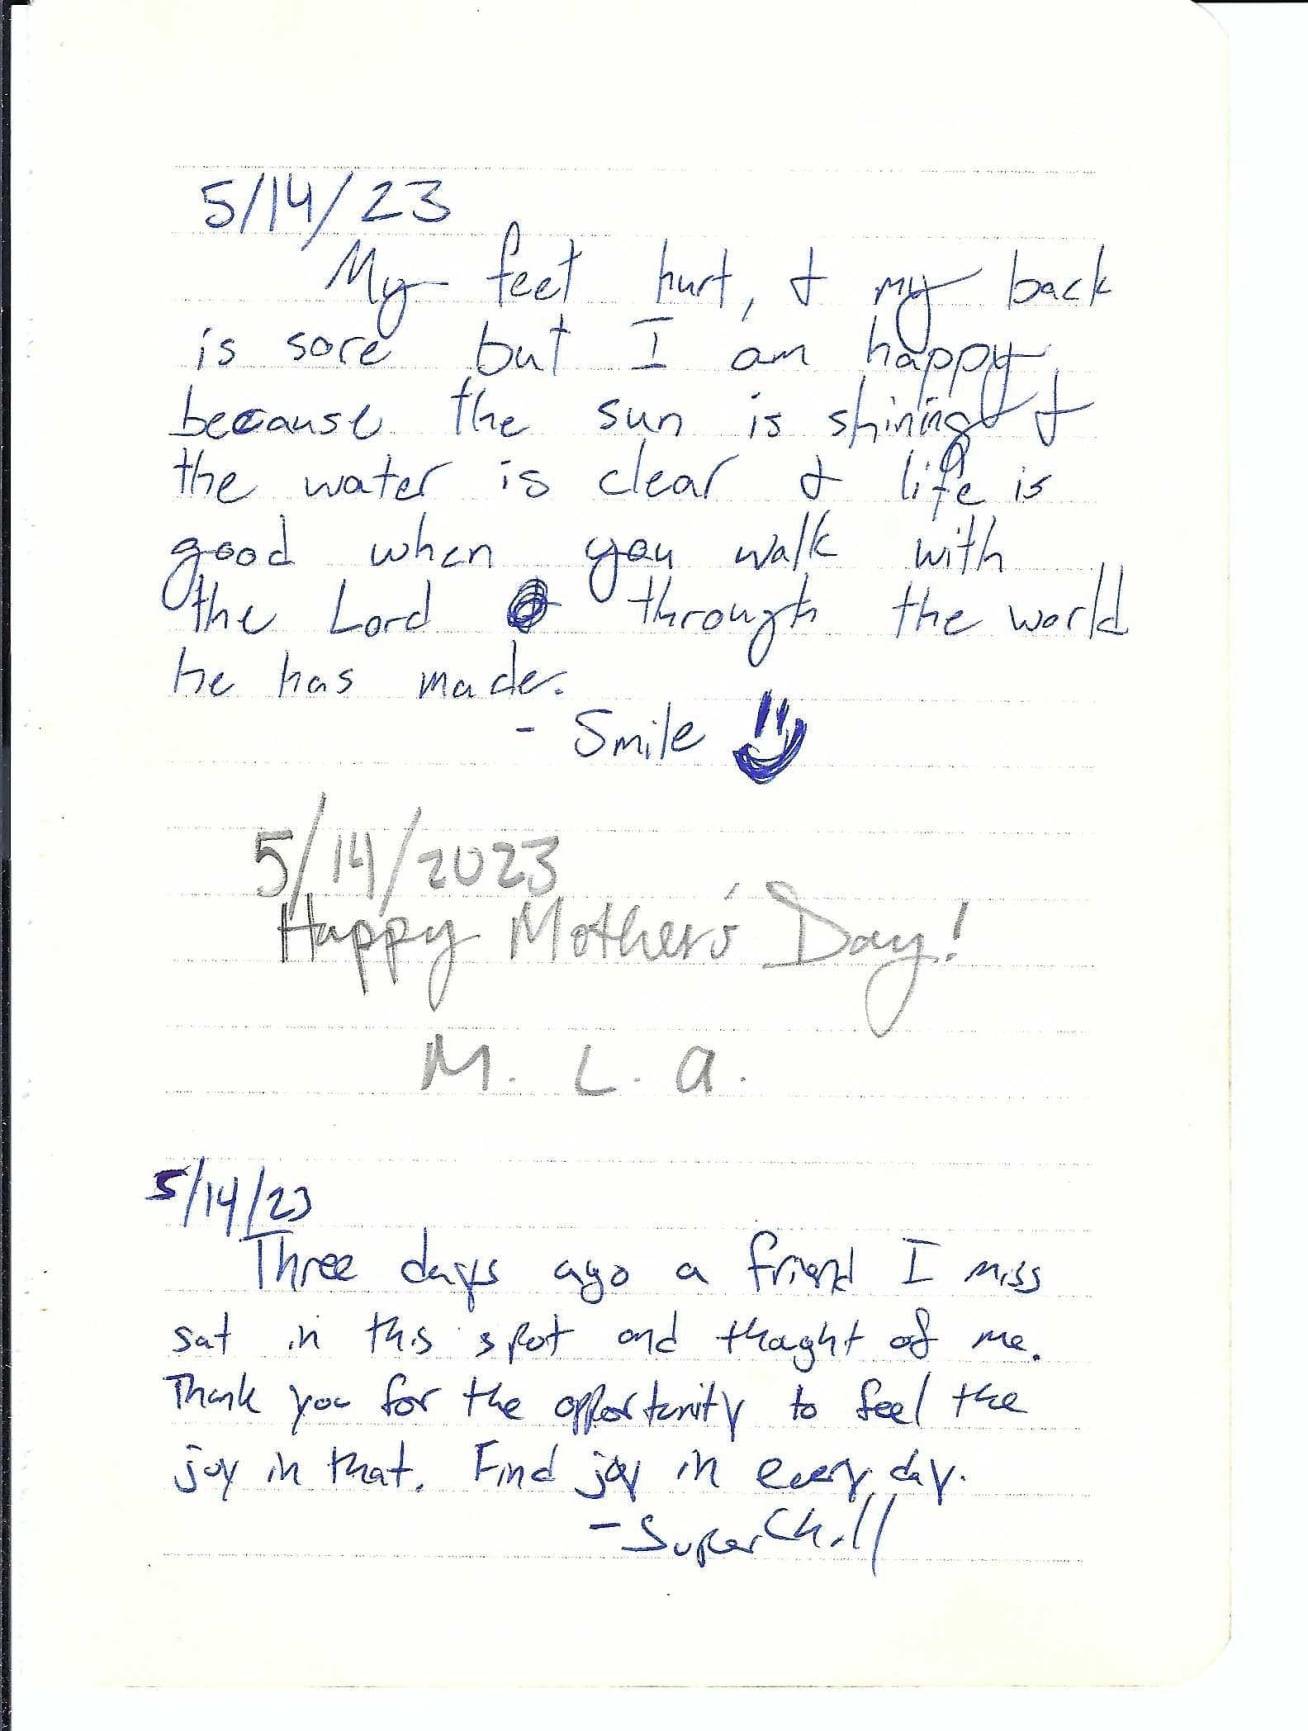 5/14/23
My feet hurt, & my back
is sore but I am happy
because the sun is shining &
the water is clear & life is
good when you walk with
the Lord through the world
he has made.
- Smile
5/14/2023
Happy Mother's Day!
M. L. A.
5/14/23
Three days ago a friend I miss
sat in this spot and thought of me.
Thank you for the opportunity to feel the
joy in that. Find joy in every day.
- SuperChill